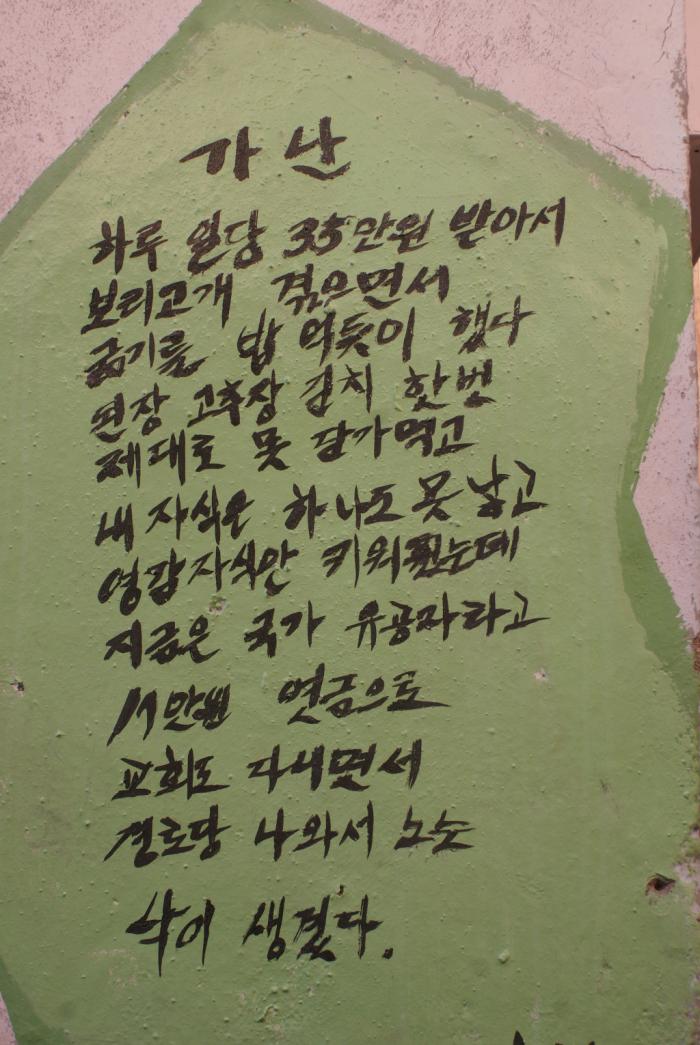 가난
하루 일당 35만원 받아서
보리고개 겪으면서
굶기를 밥 먹듯이 했다
된장 고추장 김치 한번
제대로 못 담가먹고
내 자식은 하나도 못 낳고
영감자식만 키워줬는데
지금은 국가 유공자라고
만원 연금으로
교회도 다니면서
경로당 나와서 노는
낙이 생겼다.